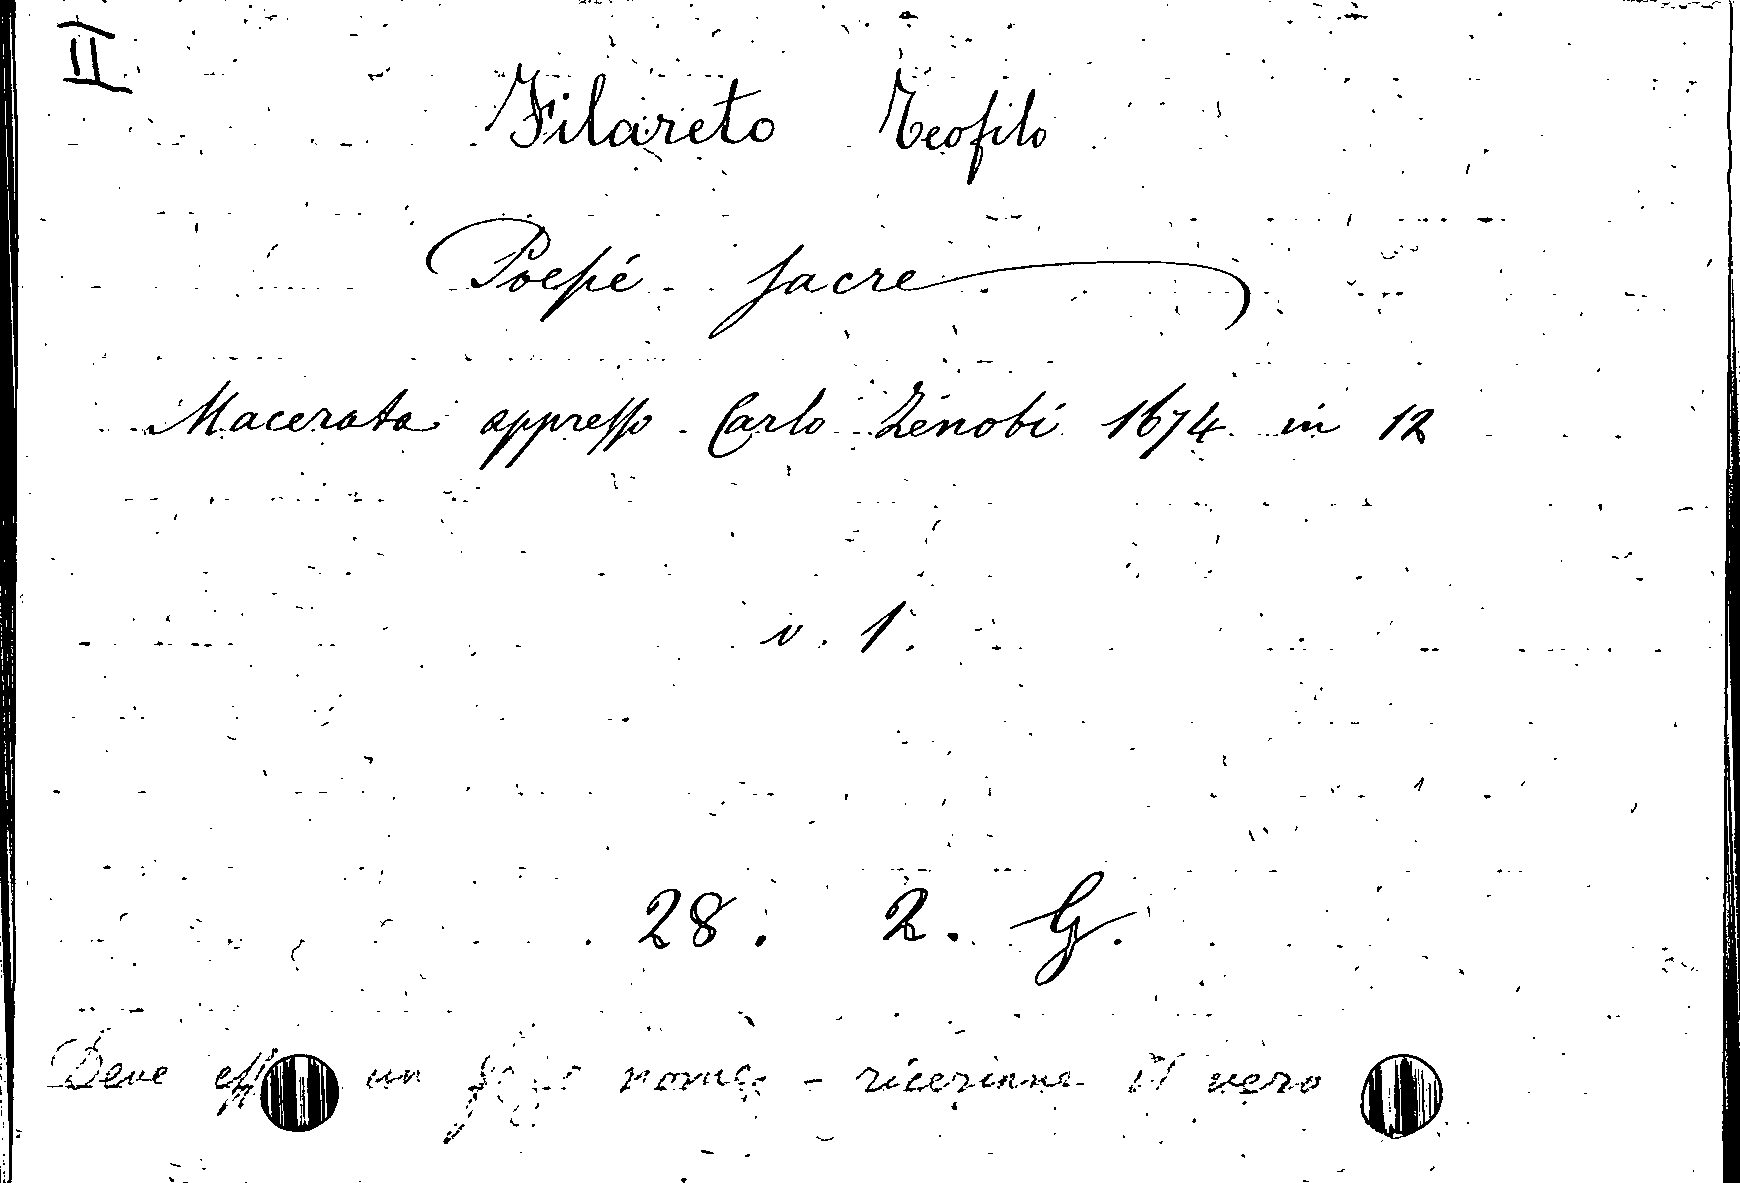 II
Filareto Teofilo
Poesie sacre
Macerata appresso Carlo Zenobi 1674 in 12
v. 1.
28. 2. G.
Deve un nome - ricerinne il vero